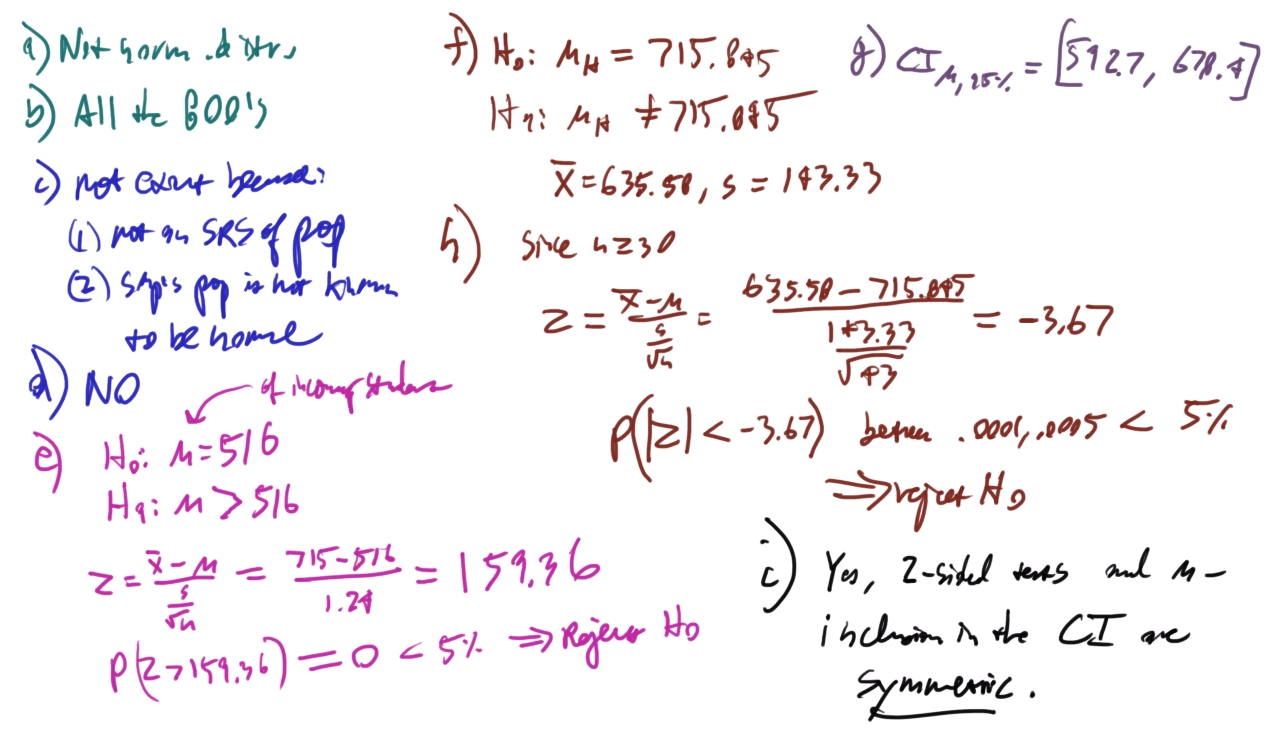 a) Not norm. distr.
b) All the 800's
c) not exact because:
(1) not an SRS of pop
(2) pop is not known
to be normal
d) NO
of incoming students
e) H₀: μ = 516
Hₐ: μ > 516
z = (x̄ - μ)/(s/√n) = (715 - 516)/1.24 = 159.36
P(z > 159.36) = 0 < 5% ⇒ Reject H₀
f) H₀: μ_H = 715.845
Hₐ: μ_H ≠ 715.845
x̄ = 635.58, s = 143.33
h) Since n ≥ 30
z = (x̄ - μ)/(s/√n) = (635.58 - 715.845)/(143.33/√43) = -3.67
P(|z| < -3.67) between .0001, .0005 < 5%
⇒ reject H₀
g) CI μ, 95% = [592.7, 678.4]
i) Yes, 2-sided tests and μ-
inclusion in the CI are
symmetric.